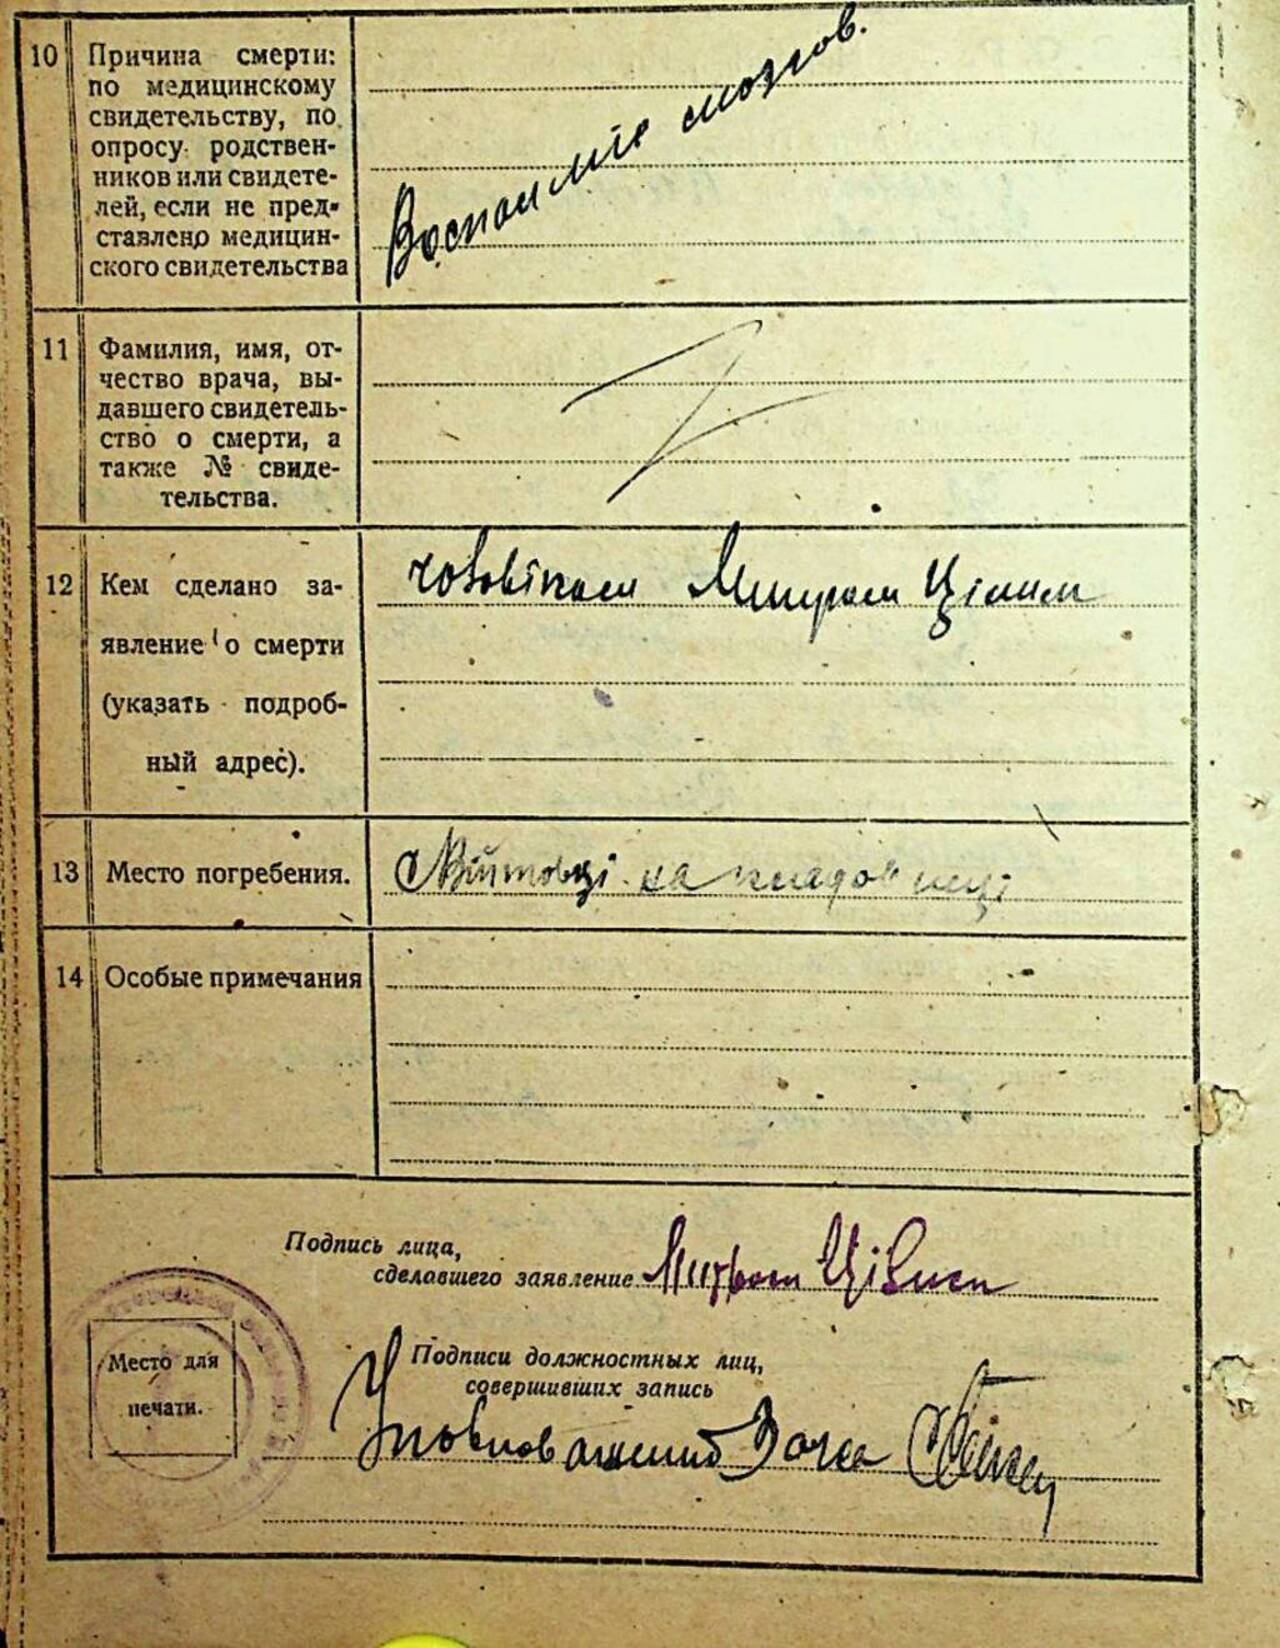 10 Причина смерти:
по медицинскому
свидетельству, по
опросу родствен-
ников или свидете-
лей, если не пред-
ставлено медицин-
ского свидетельства
Воспаление мозгов.
11 Фамилия, имя, от-
чество врача, вы-
давшего свидетель-
ство о смерти, а
также № свиде-
тельства.
12 Кем сделано за-
явление о смерти
(указать подроб-
ный адрес).
чоловіком
13 Место погребения.
на кладовищі
14 Особые примечания
Подпись лица,
сделавшего заявление
Подписи должностных лиц,
совершивших запись
Уповноважений
Место для
печати.